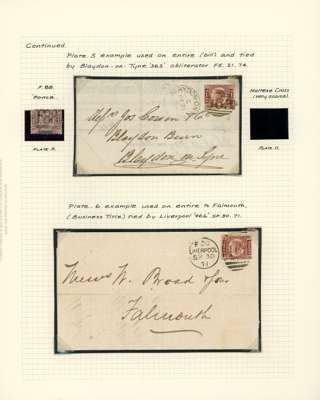 Continued.
Plate 5 example used on entire (bill) and tied
by Blaydon-on-Tyne '363' obliterator FE. 21. 74.
Maltese Cross
PLATE 11.
Messrs Jos Cowen & Co
Blaydon Burn
Blaydon on Tyne
Plate 6 example used on entire to Falmouth,
(Business Title) tied by Liverpool '466' SP. 30. 71.
LIVERPOOL
SP 30
71
Messrs W. Broad & Sons
Falmouth